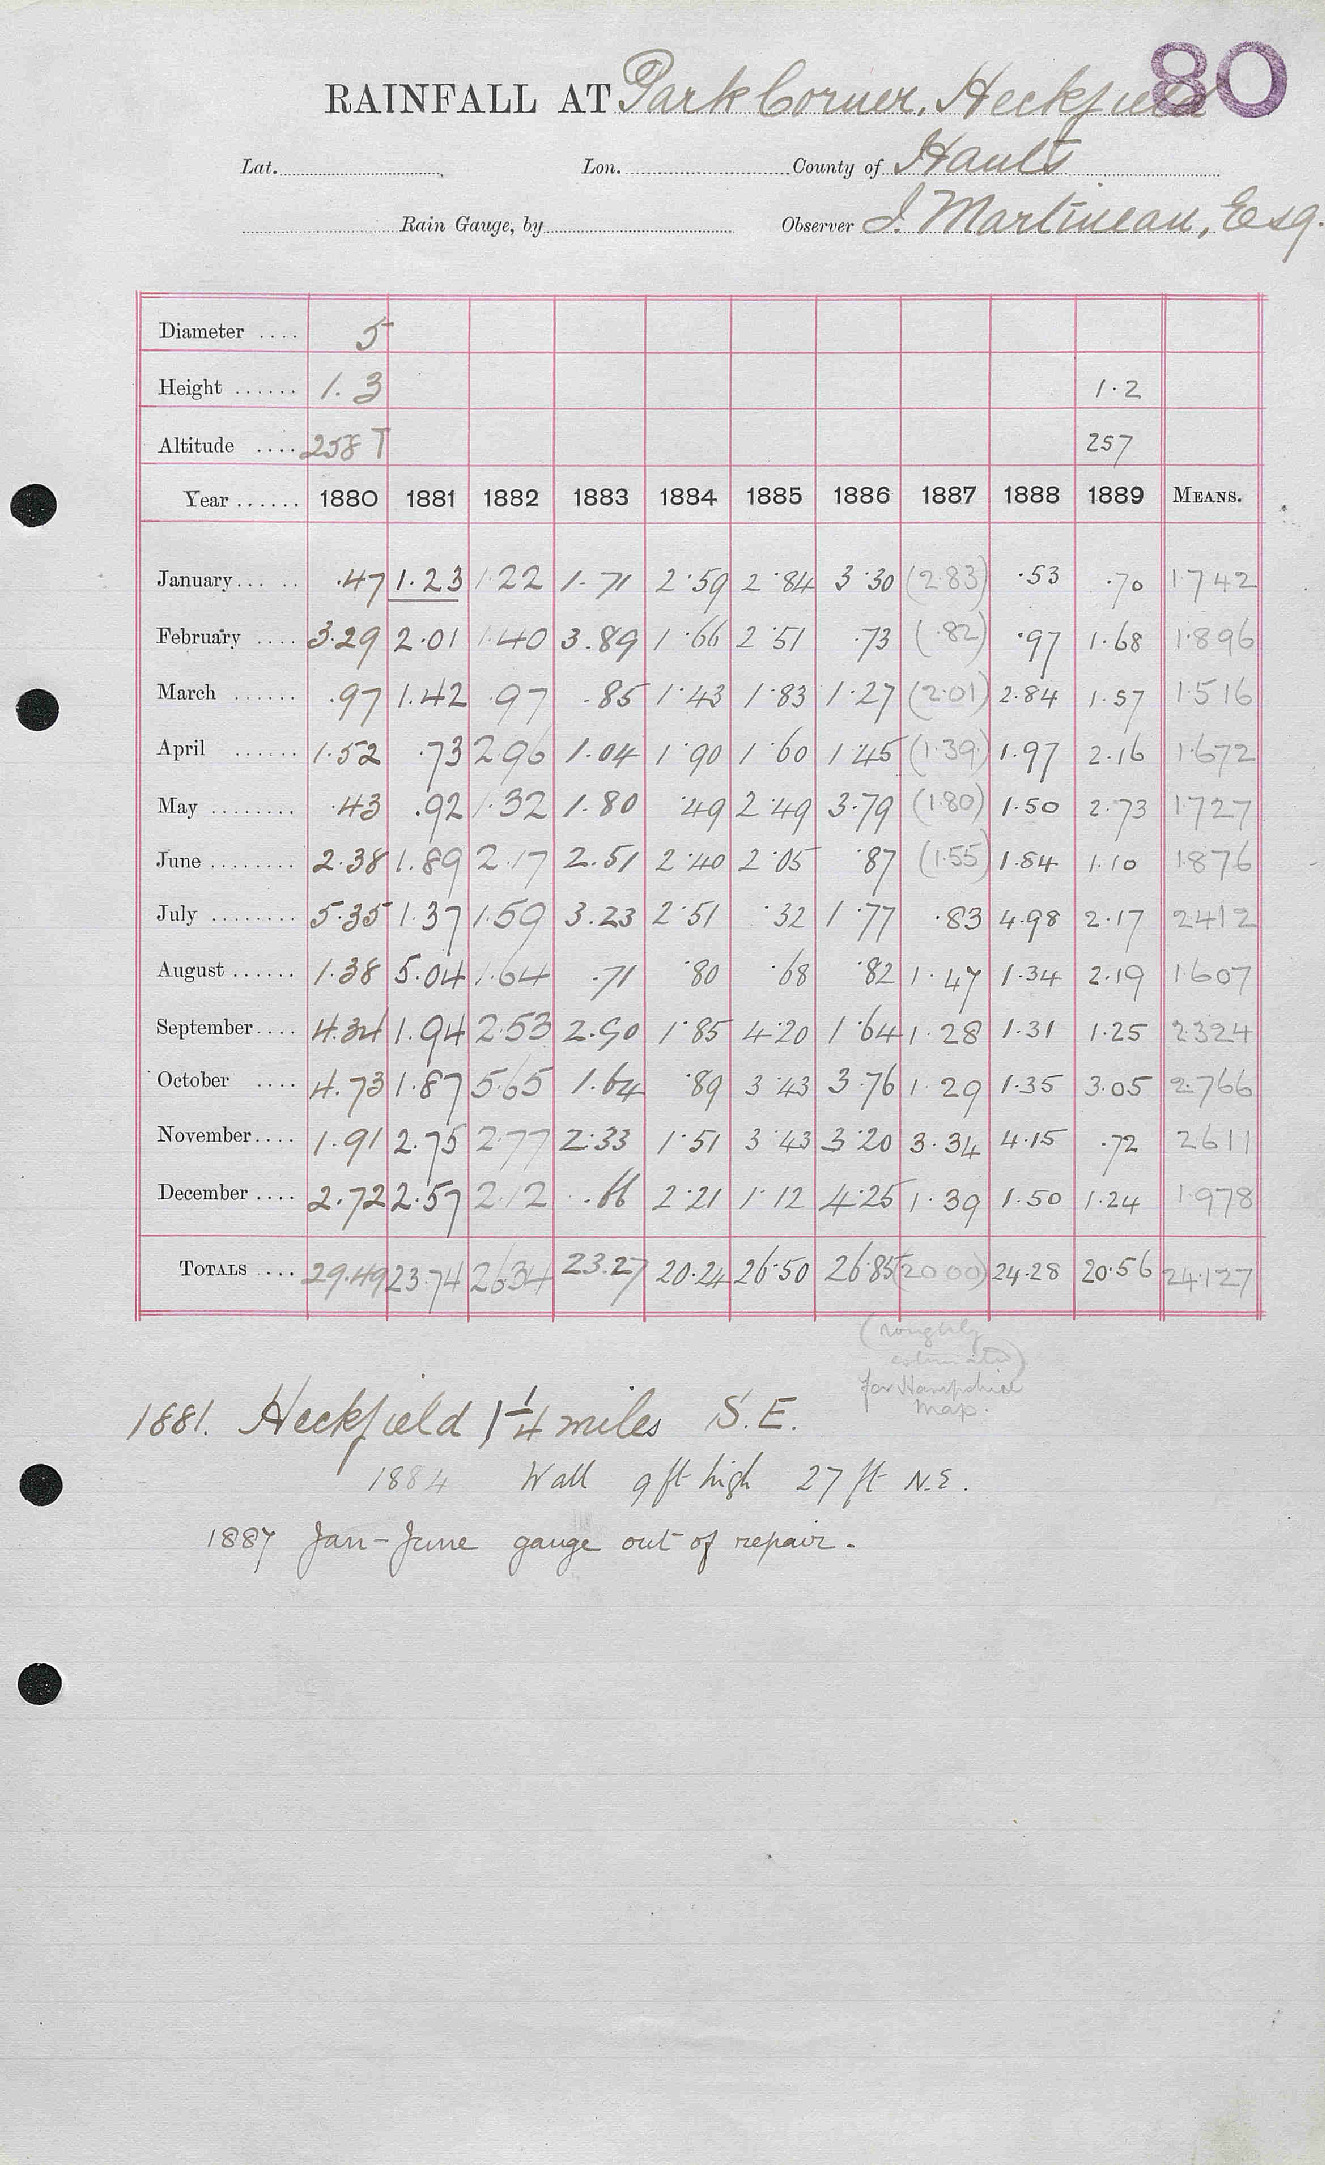 80
RAINFALL AT Park Corner, Heckfield
Lat. Lon. County of Hants
Rain Gauge, by Observer J. Martineau, Esq.
Diameter .... 5
Height ...... 1.3 1.2
Altitude .... 258 T 257
Year ...... 1880 1881 1882 1883 1884 1885 1886 1887 1888 1889 MEANS.
January... .. .47 1.23 1.22 1.71 2.59 2.84 3.30 (2.83) .53 .70 1.742
February .... 3.29 2.01 1.40 3.89 1.66 2.51 .73 (.82) .97 1.68 1.896
March ...... .97 1.42 .97 .85 1.43 1.83 1.27 (2.01) 2.84 1.57 1.516
April ...... 1.52 .73 2.96 1.04 1.90 1.60 1.45 (1.39) 1.97 2.16 1.672
May ........ .43 .92 1.32 1.80 .49 2.49 3.79 (1.80) 1.50 2.73 1.727
June ........ 2.38 1.89 2.17 2.51 2.40 2.05 .87 (1.55) 1.84 1.10 1.876
July ........ 5.35 1.37 1.59 3.23 2.51 .32 1.77 .83 4.98 2.17 2.412
August ...... 1.38 5.04 1.64 .71 .80 .68 .82 1.47 1.34 2.19 1.607
September.... 4.34 1.94 2.53 2.90 1.85 4.20 1.64 1.28 1.31 1.25 2.324
October .... 4.73 1.87 5.65 1.64 .89 3.43 3.76 1.29 1.35 3.05 2.766
November.... 1.91 2.75 2.77 2.33 1.51 3.43 3.20 3.34 4.15 .72 2.611
December .... 2.72 2.57 2.12 .66 2.21 1.12 4.25 1.39 1.50 1.24 1.978
TOTALS .... 29.49 23.74 26.34 23.27 20.24 26.50 26.85 (20.00) 24.28 20.56 24.127
(roughly
estimated)
for Hampshire
Map.
1881. Heckfield 1 1/4 miles S.E.
1884 Wall 9 ft high 27 ft N.E.
1887 Jan-June gauge out of repair.